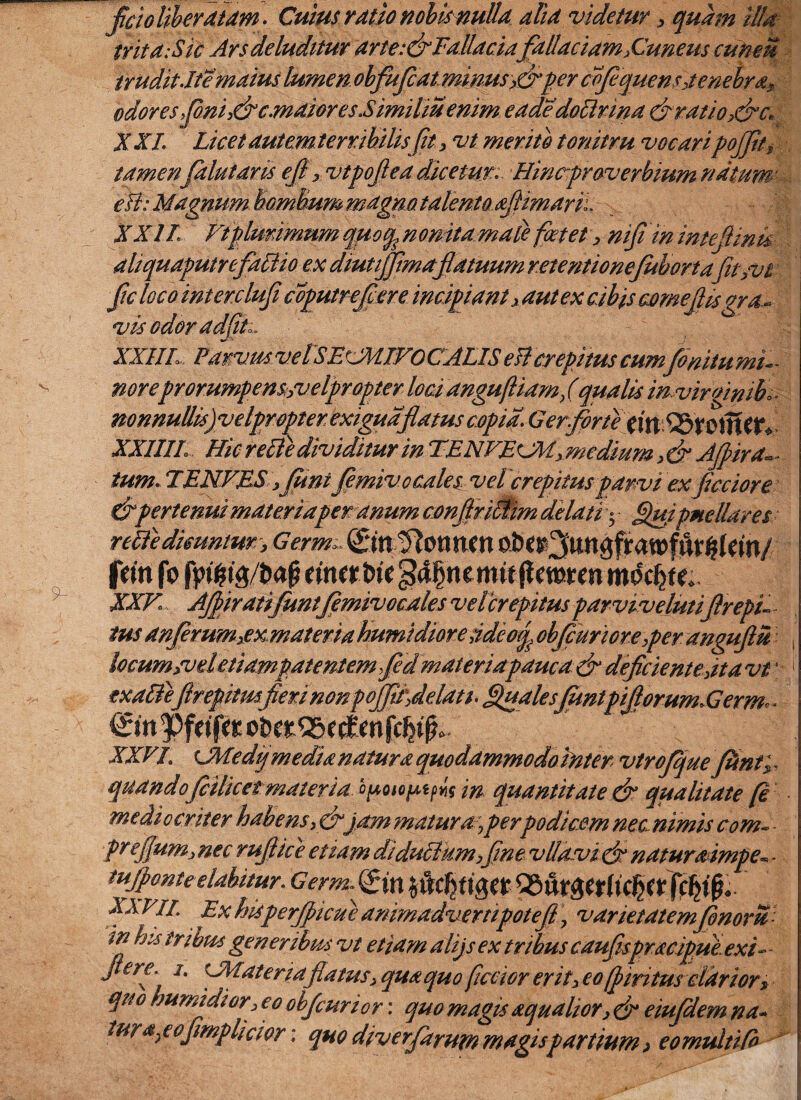 ficio liberatam. Cuius ratio nobis nulla alia videtur, quàm illa
trita: Sic Ars deluditur arte: & Fallacia fallaciam, Cuneus cuneū
trudit. Itē maius lumen obfuſcat minus, & per cōſequens, tenebræ,
odores, ſoni, &c. maiores. Similiū enim eadē doctrina & ratio, &c.
XXI. Licet autem terribilis ſit, vt meritò tonitru vocari poſſit,
tamen ſalutaris eſt, vt poſtea dicetur. Hinc proverbium natum
eſt: Magnum bombum magno talento æſtimari.
XXII. Vt plurimum quoq; non ita malè fœtet, niſi in inteſtinis
aliqua putrefactio ex diutiſſima flatuum retentione ſuborta ſit, vt
ſic loco intercluſi cōputreſcere incipiant, aut ex cibis comeſtis gra-
vis odor adſit.
XXIII. Parvus vel SEMIVOCALIS eſt crepitus cum ſonitu mi-
nore prorumpens, vel propter loci anguſtiam, (qualis in virginib.
nonnullis) vel propter exiguā flatus copiā. Ger. fortè ein Bromer.
XXIIII. Hic rectè dividitur in TENVEM, medium, & Aſpira-
tum. TENVES, ſunt ſemivocales vel crepitus parvi ex ſicciore
& pertenui materia per anum conſtrictim delati; Qui puellares
rectè dicuntur, Germ. Ein Nonnen oder Jungfrawfürtzlein/
ſein ſo ſpitzig/daß einer die Zähne mit ſtewren möchte.
XXV. Aſpirati ſunt ſemivocales vel crepitus parvi veluti ſtrepi-
tus anſerum, ex materia humidiore, ideoq; obſcuriore, per anguſtū
locum, vel etiam patentem, ſed materia pauca & deficiente, ita vt
exactè ſtrepitus fieri non poſſit, delati. Quales ſunt piſtorum. Germ.
Ein Pfeifer oder Beckenſchiß.
XXVI. Medij media natura quodammodo inter vtroſque ſunt,
quando ſcilicet materia ὁμοιομερὴς in quantitate & qualitate ſe
mediocriter habens, & jam matura, per podicem nec nimis com-
preſſum, nec ruſticè etiam diductum, ſine vlla vi & naturæ impe-
tu, ſponte elabitur. Germ. Ein züchtiger Bürgerlicher ſchiß.
XXVII. Ex his perſpicuè animadverti poteſt, varietatem ſonorū
in his tribus generibus vt etiam alijs ex tribus cauſis præcipuè exi-
ſtere. 1. Materia flatus, quæ quo ſiccior erit, eo ſpiritus clarior,
quo humidior, eo obſcurior: quo magis æqualior, & eiuſdem na-
turæ, eo ſimplicior: quo diverſarum magis partium, eo multiſo-